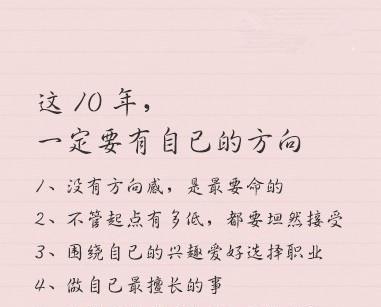 这 10 年，
一定要有自己的方向
1、没有方向感，是最要命的
2、不管起点有多低，都要坦然接受
3、围绕自己的兴趣爱好选择职业
4、做自己最擅长的事